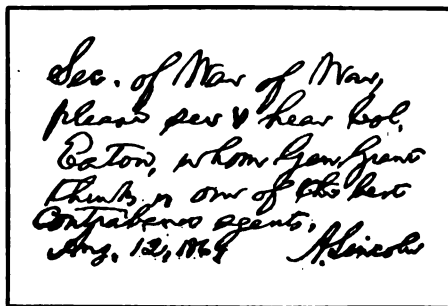 Sec. of War of War,
please see & hear Col.
Eaton, whom Gen. Grant
thinks is one of the best
contraband agents.
Aug. 12, 1864 A. Lincoln